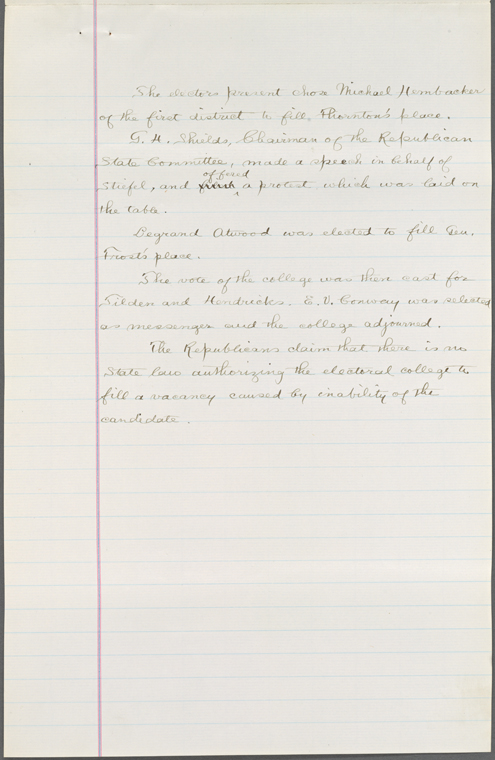 The electors present chose Michael Hembacker
of the first district to fill Thornton's place.
G. H. Shields, Chairman of the Republican
State Committee, made a speech in behalf of
Stiefel, and offered a protest which was laid on
the table.
Legrand Atwood was elected to fill Gen.
Frost's place.
The vote of the college was then cast for
Tilden and Hendricks. E. V. Conway was selected
as messenger and the college adjourned.
The Republicans claim that there is no
State law authorizing the electoral college to
fill a vacancy caused by inability of the
candidate.